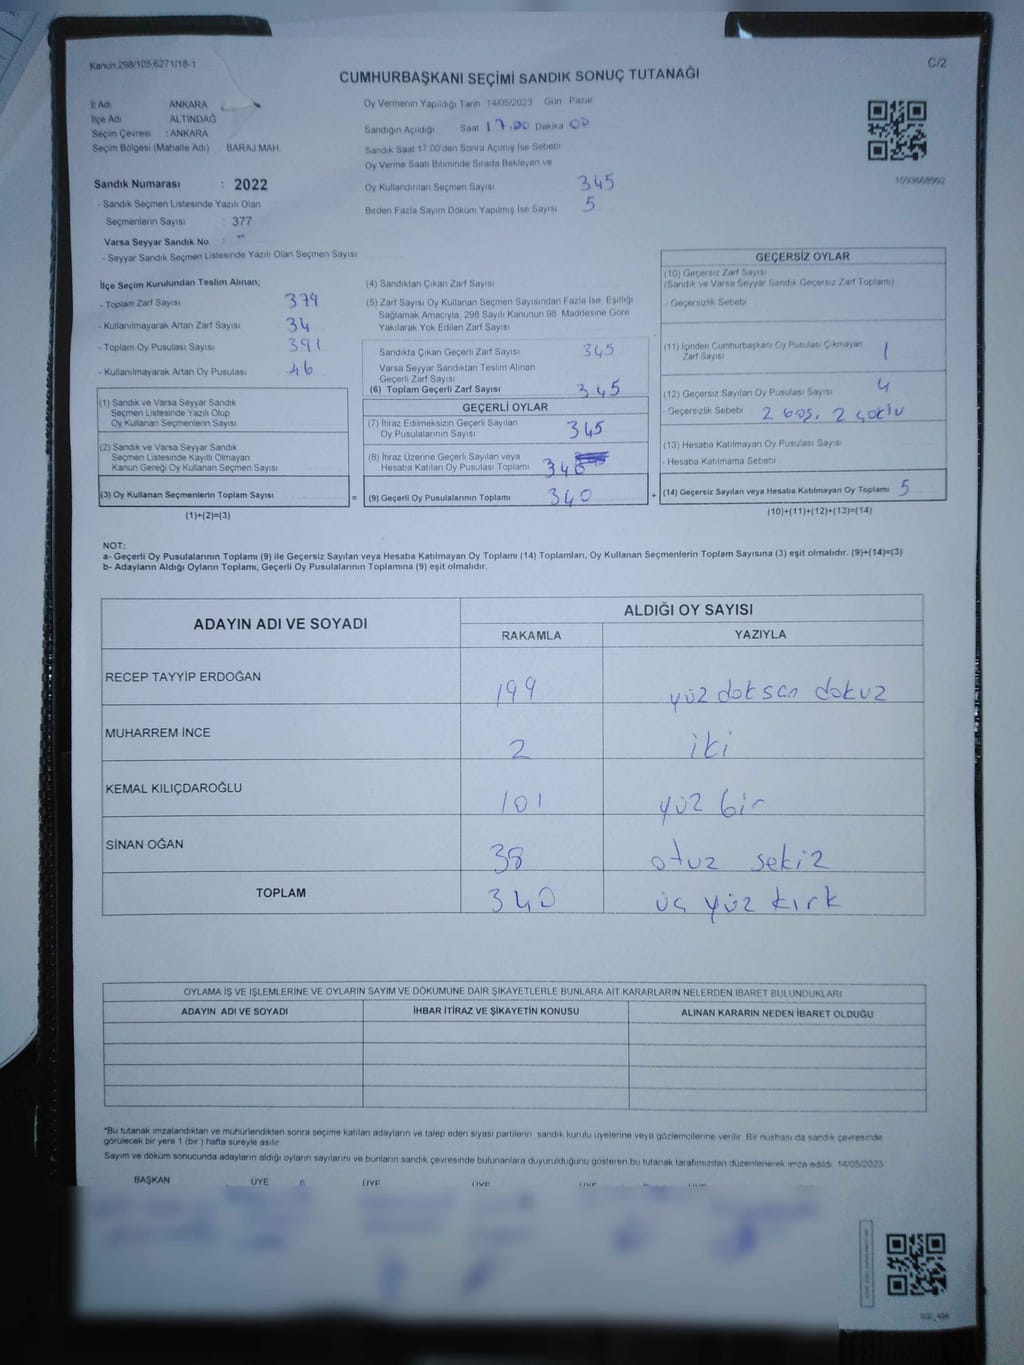 Kanun:298/105,6271/18-1
C/2
CUMHURBAŞKANI SEÇİMİ SANDIK SONUÇ TUTANAĞI
İl Adı ANKARA
İlçe Adı ALTINDAĞ
Seçim Çevresi : ANKARA
Seçim Bölgesi (Mahalle Adı) BARAJ MAH
Sandık Numarası : 2022
- Sandık Seçmen Listesinde Yazılı Olan
Seçmenlerin Sayısı : 377
Varsa Seyyar Sandık No
- Seyyar Sandık Seçmen Listesinde Yazılı Olan Seçmen Sayısı
Oy Vermenin Yapıldığı Tarih 14/05/2023 Gün Pazar
Sandığın Açıldığı Saat 17.00 Dakika 00
Sandık Saat 17:00'den Sonra Açımış İse Sebebi
Oy Verme Saati Bitiminde Sırada Bekleyen ve
Oy Kullandırılan Seçmen Sayısı 345
Birden Fazla Sayım Döküm Yapılmış İse Sayısı 5
1093668992
İlçe Seçim Kurulundan Teslim Alınan;
- Toplam Zarf Sayısı 379
- Kullanılmayarak Artan Zarf Sayısı 34
- Toplam Oy Pusulası Sayısı 391
- Kullanılmayarak Artan Oy Pusulası 46
(1) Sandık ve Varsa Seyyar Sandık
Seçmen Listesinde Yazılı Olup
Oy Kullanan Seçmenlerin Sayısı
(2) Sandık ve Varsa Seyyar Sandık
Seçmen Listesinde Kayıtlı Olmayan
Kanun Gereği Oy Kullanan Seçmen Sayısı
(3) Oy Kullanan Seçmenlerin Toplam Sayısı =
(1)+(2)=(3)
(4) Sandıktan Çıkan Zarf Sayısı
(5) Zarf Sayısı Oy Kullanan Seçmen Sayısından Fazla İse, Eşitliği
Sağlamak Amacıyla, 298 Sayılı Kanunun 98. Maddesine Göre
Yakılarak Yok Edilen Zarf Sayısı
Sandıkta Çıkan Geçerli Zarf Sayısı 345
Varsa Seyyar Sandıktan Teslim Alınan
Geçerli Zarf Sayısı
(6) Toplam Geçerli Zarf Sayısı 345
GEÇERLİ OYLAR
(7) İtiraz Edilmeksizin Geçerli Sayılan
Oy Pusulalarının Sayısı 345
(8) İtiraz Üzerine Geçerli Sayılan veya
Hesaba Katılan Oy Pusulası Toplamı 340
(9) Geçerli Oy Pusulalarının Toplamı 340 +
GEÇERSİZ OYLAR
(10) Geçersiz Zarf Sayısı
(Sandık ve Varsa Seyyar Sandık Geçersiz Zarf Toplamı)
- Geçersizlik Sebebi
(11) İçinden Cumhurbaşkanı Oy Pusulası Çıkmayan
Zarf Sayısı 1
(12) Geçersiz Sayılan Oy Pusulası Sayısı 4
- Geçersizlik Sebebi 2 boş, 2 çoklu
(13) Hesaba Katılmayan Oy Pusulası Sayısı
- Hesaba Katılmama Sebebi
(14) Geçersiz Sayılan veya Hesaba Katılmayan Oy Toplamı 5
(10)+(11)+(12)+(13)=(14)
NOT:
a- Geçerli Oy Pusulalarının Toplamı (9) ile Geçersiz Sayılan veya Hesaba Katılmayan Oy Toplamı (14) Toplamları, Oy Kullanan Seçmenlerin Toplam Sayısına (3) eşit olmalıdır. (9)+(14)=(3)
b- Adayların Aldığı Oyların Toplamı, Geçerli Oy Pusulalarının Toplamına (9) eşit olmalıdır.
ADAYIN ADI VE SOYADI
ALDIĞI OY SAYISI
RAKAMLA YAZIYLA
RECEP TAYYİP ERDOĞAN 199 yüz doksan dokuz
MUHARREM İNCE 2 iki
KEMAL KILIÇDAROĞLU 101 yüz bir
SİNAN OĞAN 38 otuz sekiz
TOPLAM 340 üç yüz kırk
OYLAMA İŞ VE İŞLEMLERİNE VE OYLARIN SAYIM VE DÖKÜMÜNE DAİR ŞİKAYETLERLE BUNLARA AİT KARARLARIN NELERDEN İBARET BULUNDUKLARI
ADAYIN ADI VE SOYADI İHBAR İTİRAZ VE ŞİKAYETİN KONUSU ALINAN KARARIN NEDEN İBARET OLDUĞU
*Bu tutanak imzalandıktan ve mühürlendikten sonra seçime katılan adayların ve talep eden siyasi partilerin sandık kurulu üyelerine veya gözlemcilerine verilir. Bir nüshası da sandık çevresinde
görülecek bir yere 1 (bir ) hafta süreyle asılır.
Sayım ve döküm sonucunda adayların aldığı oyların sayılarını ve bunların sandık çevresinde bulunanlara duyurulduğunu gösteren bu tutanak tarafımızdan düzenlenerek imza edildi. 14/05/2023
BAŞKAN ÜYE ÜYE ÜYE ÜYE